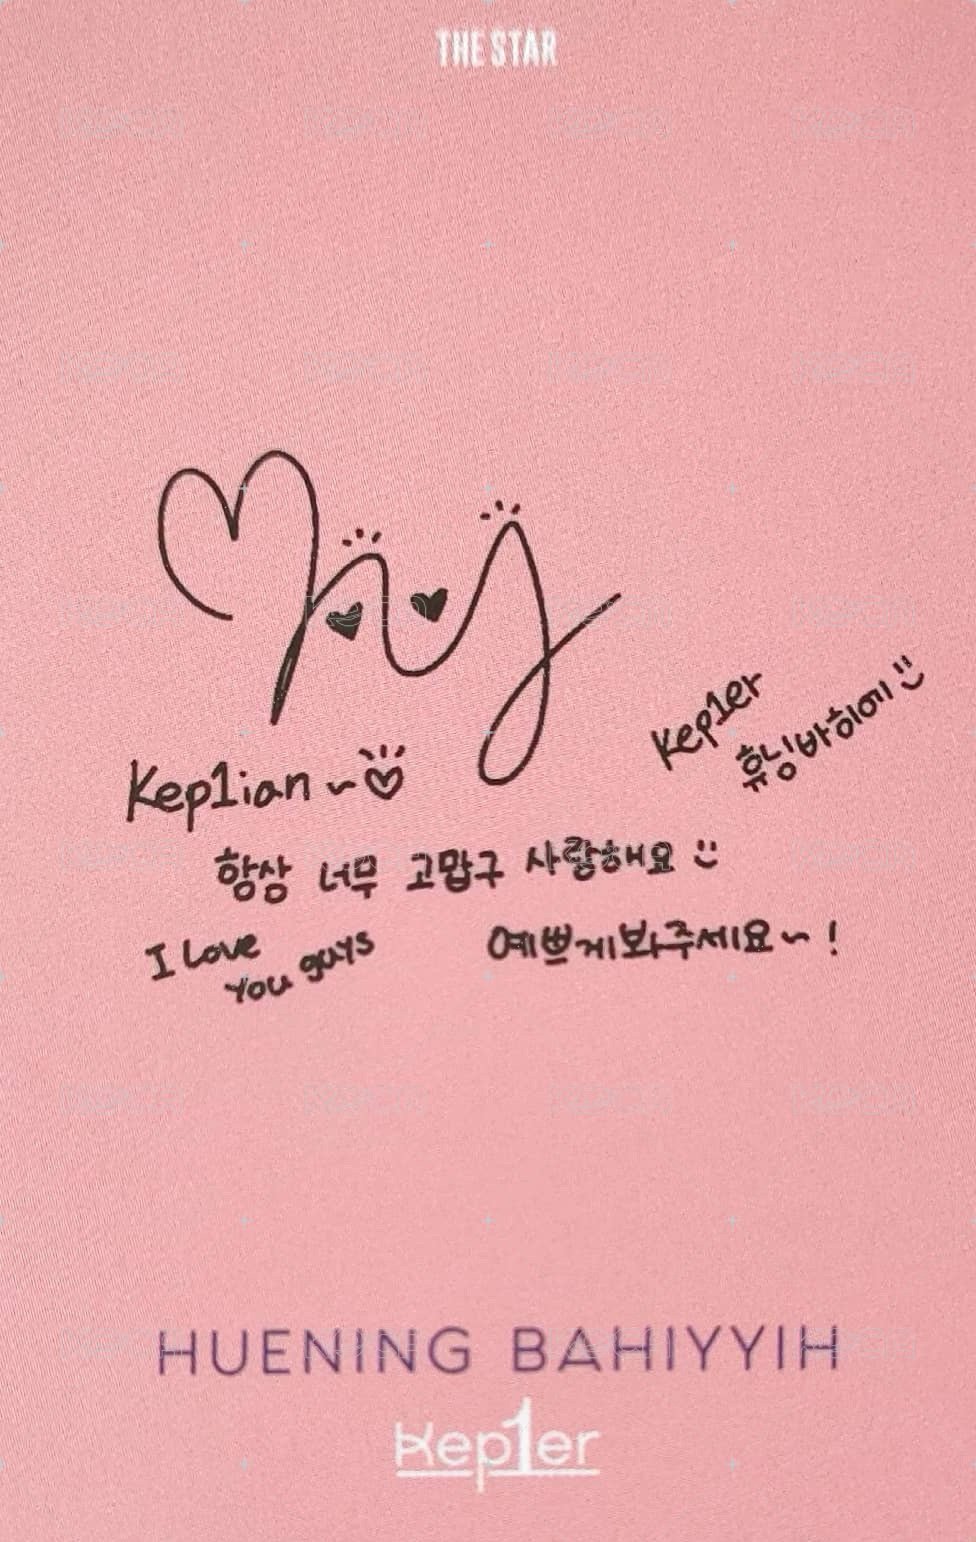 THE STAR
Kep1er
휴닝바히에
Kep1ian ~
항상 너무 고맙구 사랑해요
I Love
you guys
예쁘게봐주세요~!
HUENING BAHIYYIH
Kep1er